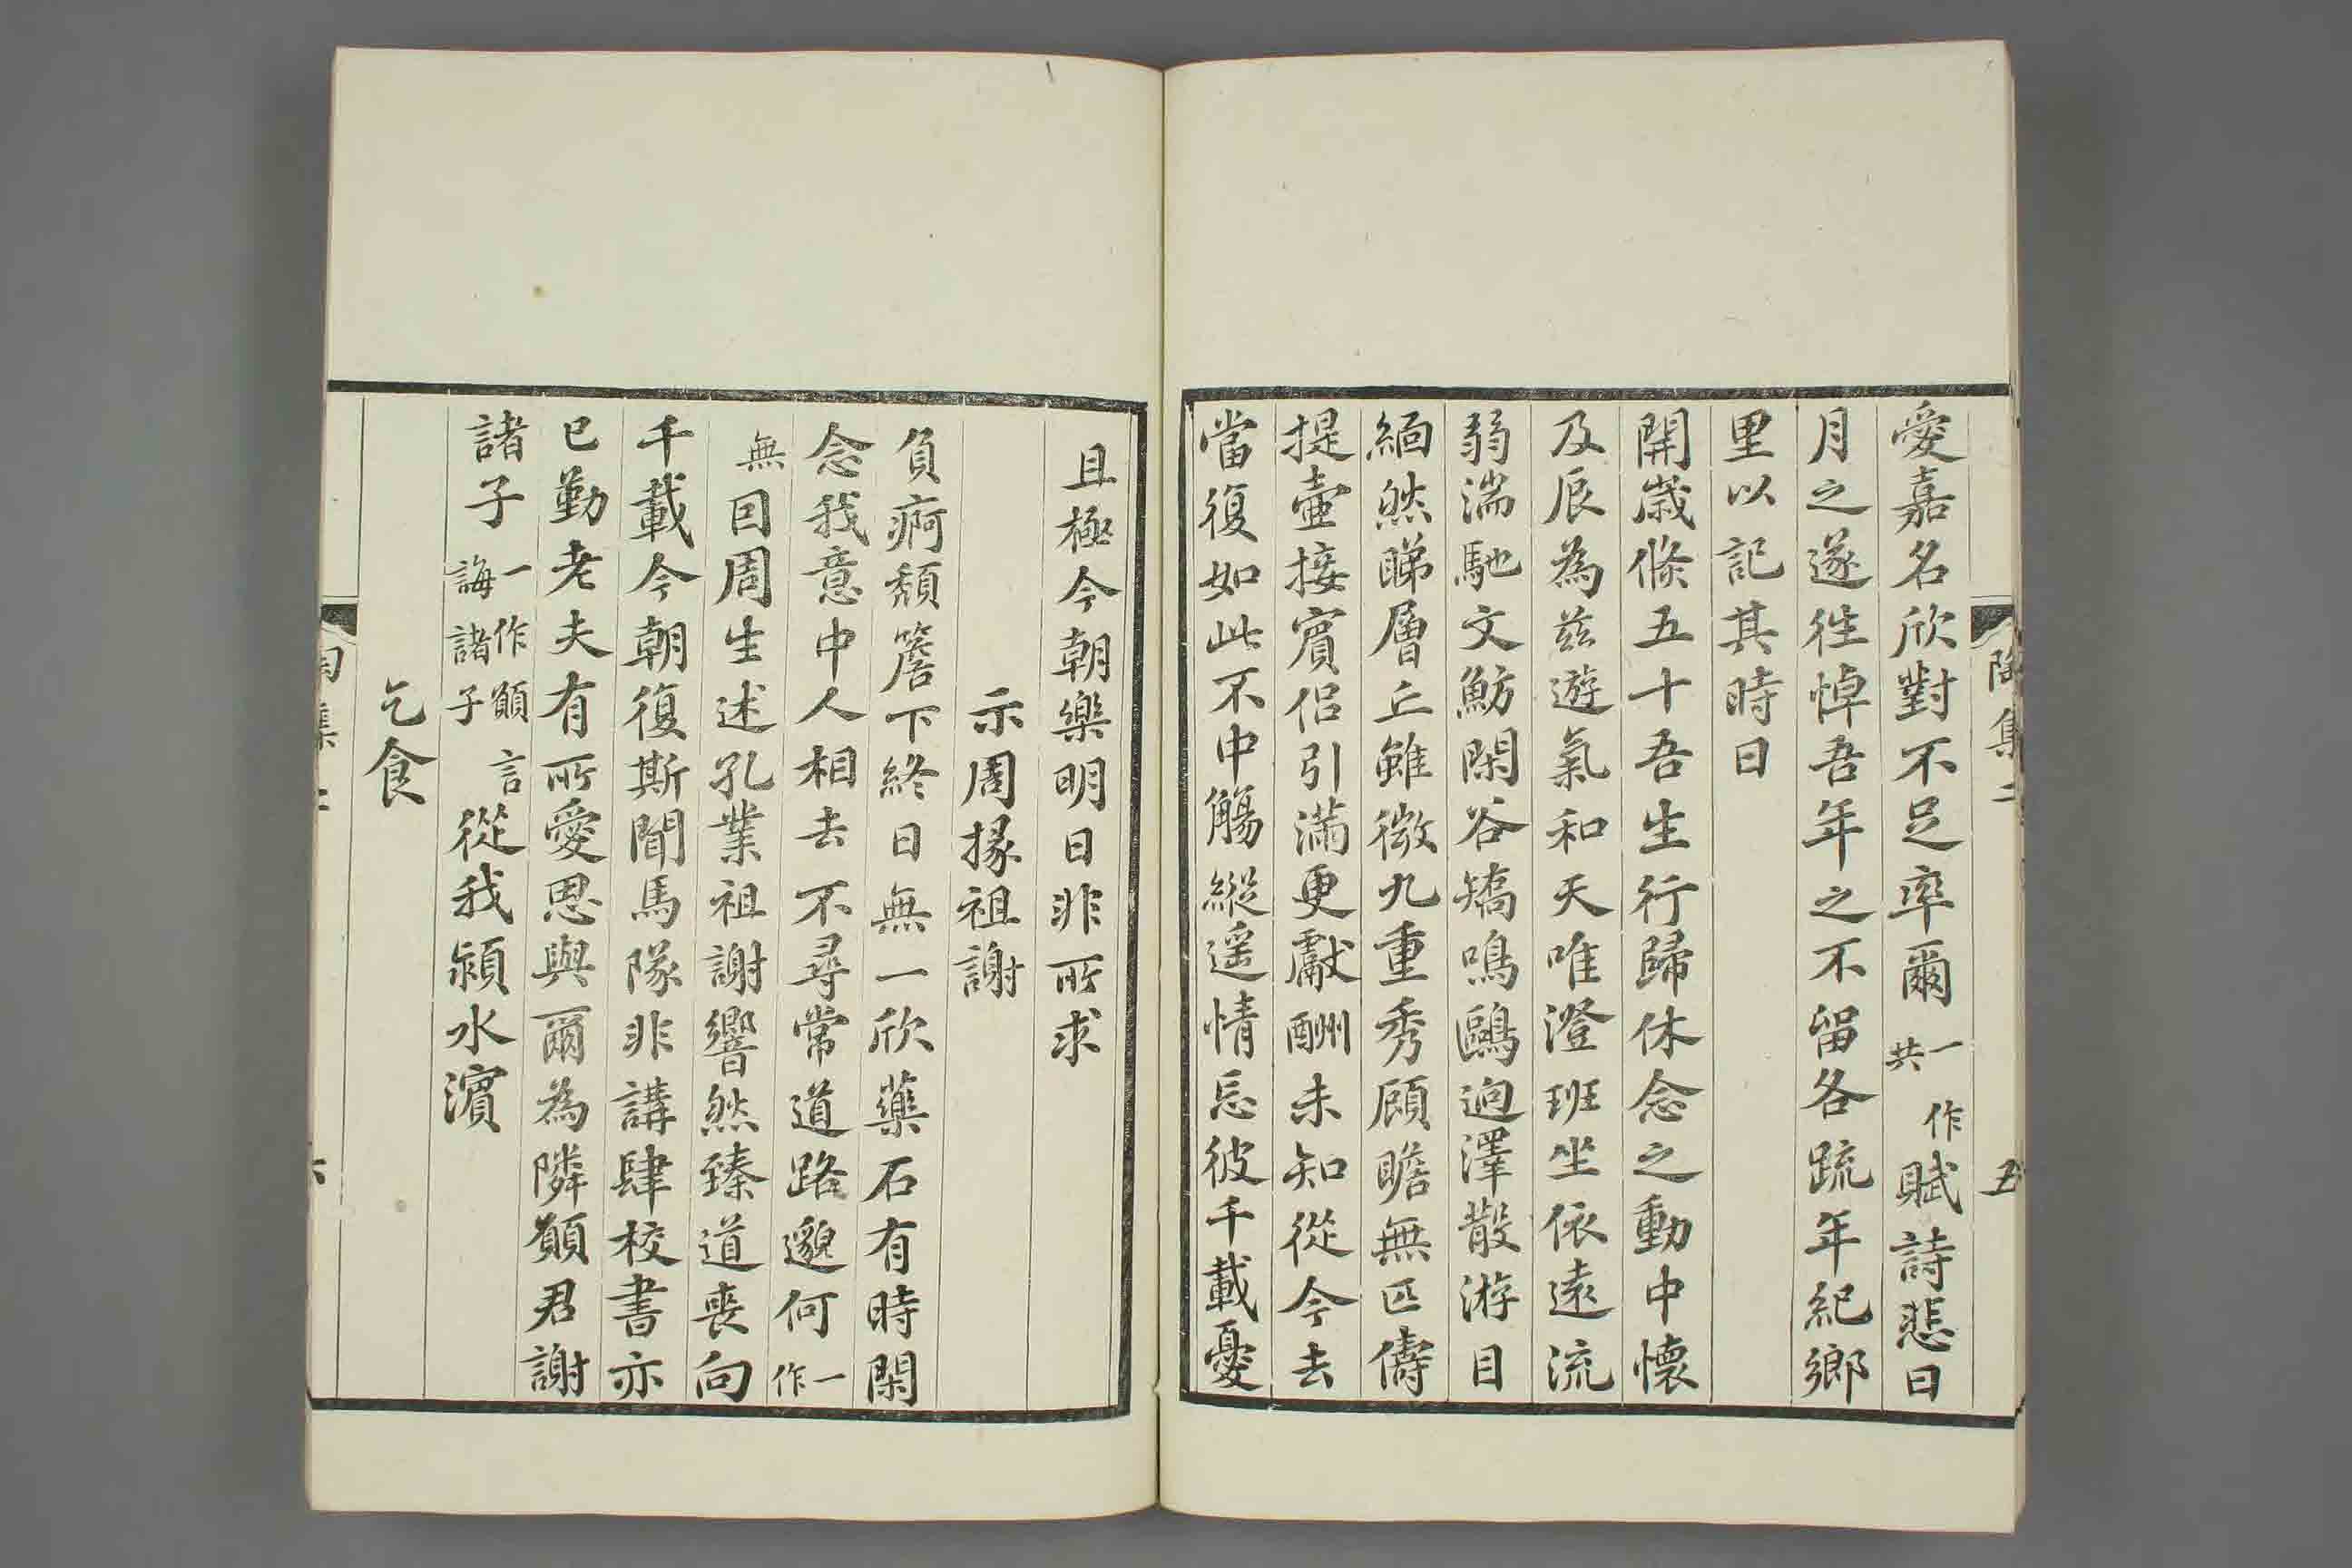 陶集二　五
愛嘉名欣對不足率爾一作共賦詩悲日
月之遂徃悼吾年之不留各疏年紀鄉
里以記其時日
開歳倐五十吾生行歸休念之動中懷
及辰為兹遊氣和天唯澄班坐依遠流
弱湍馳文魴閑谷矯鳴鷗迥澤散游目
緬然睇層丘雖微九重秀顧瞻無匹儔
提壷接賓侣引滿更獻酬未知從今去
當復如此不中觴縱遥情忘彼千載憂
且極今朝樂明日非所求
示周掾祖謝
負痾頹簷下終日無一欣藥石有時閑
念我意中人相去不尋常道路邈何一作
無因周生述孔業祖謝響然臻道喪向
千載今朝復斯聞馬隊非講肆校書亦
已勤老夫有所愛思與爾為隣願君謝
諸子一作願言誨諸子從我潁水濵
乞食
陶集二　六